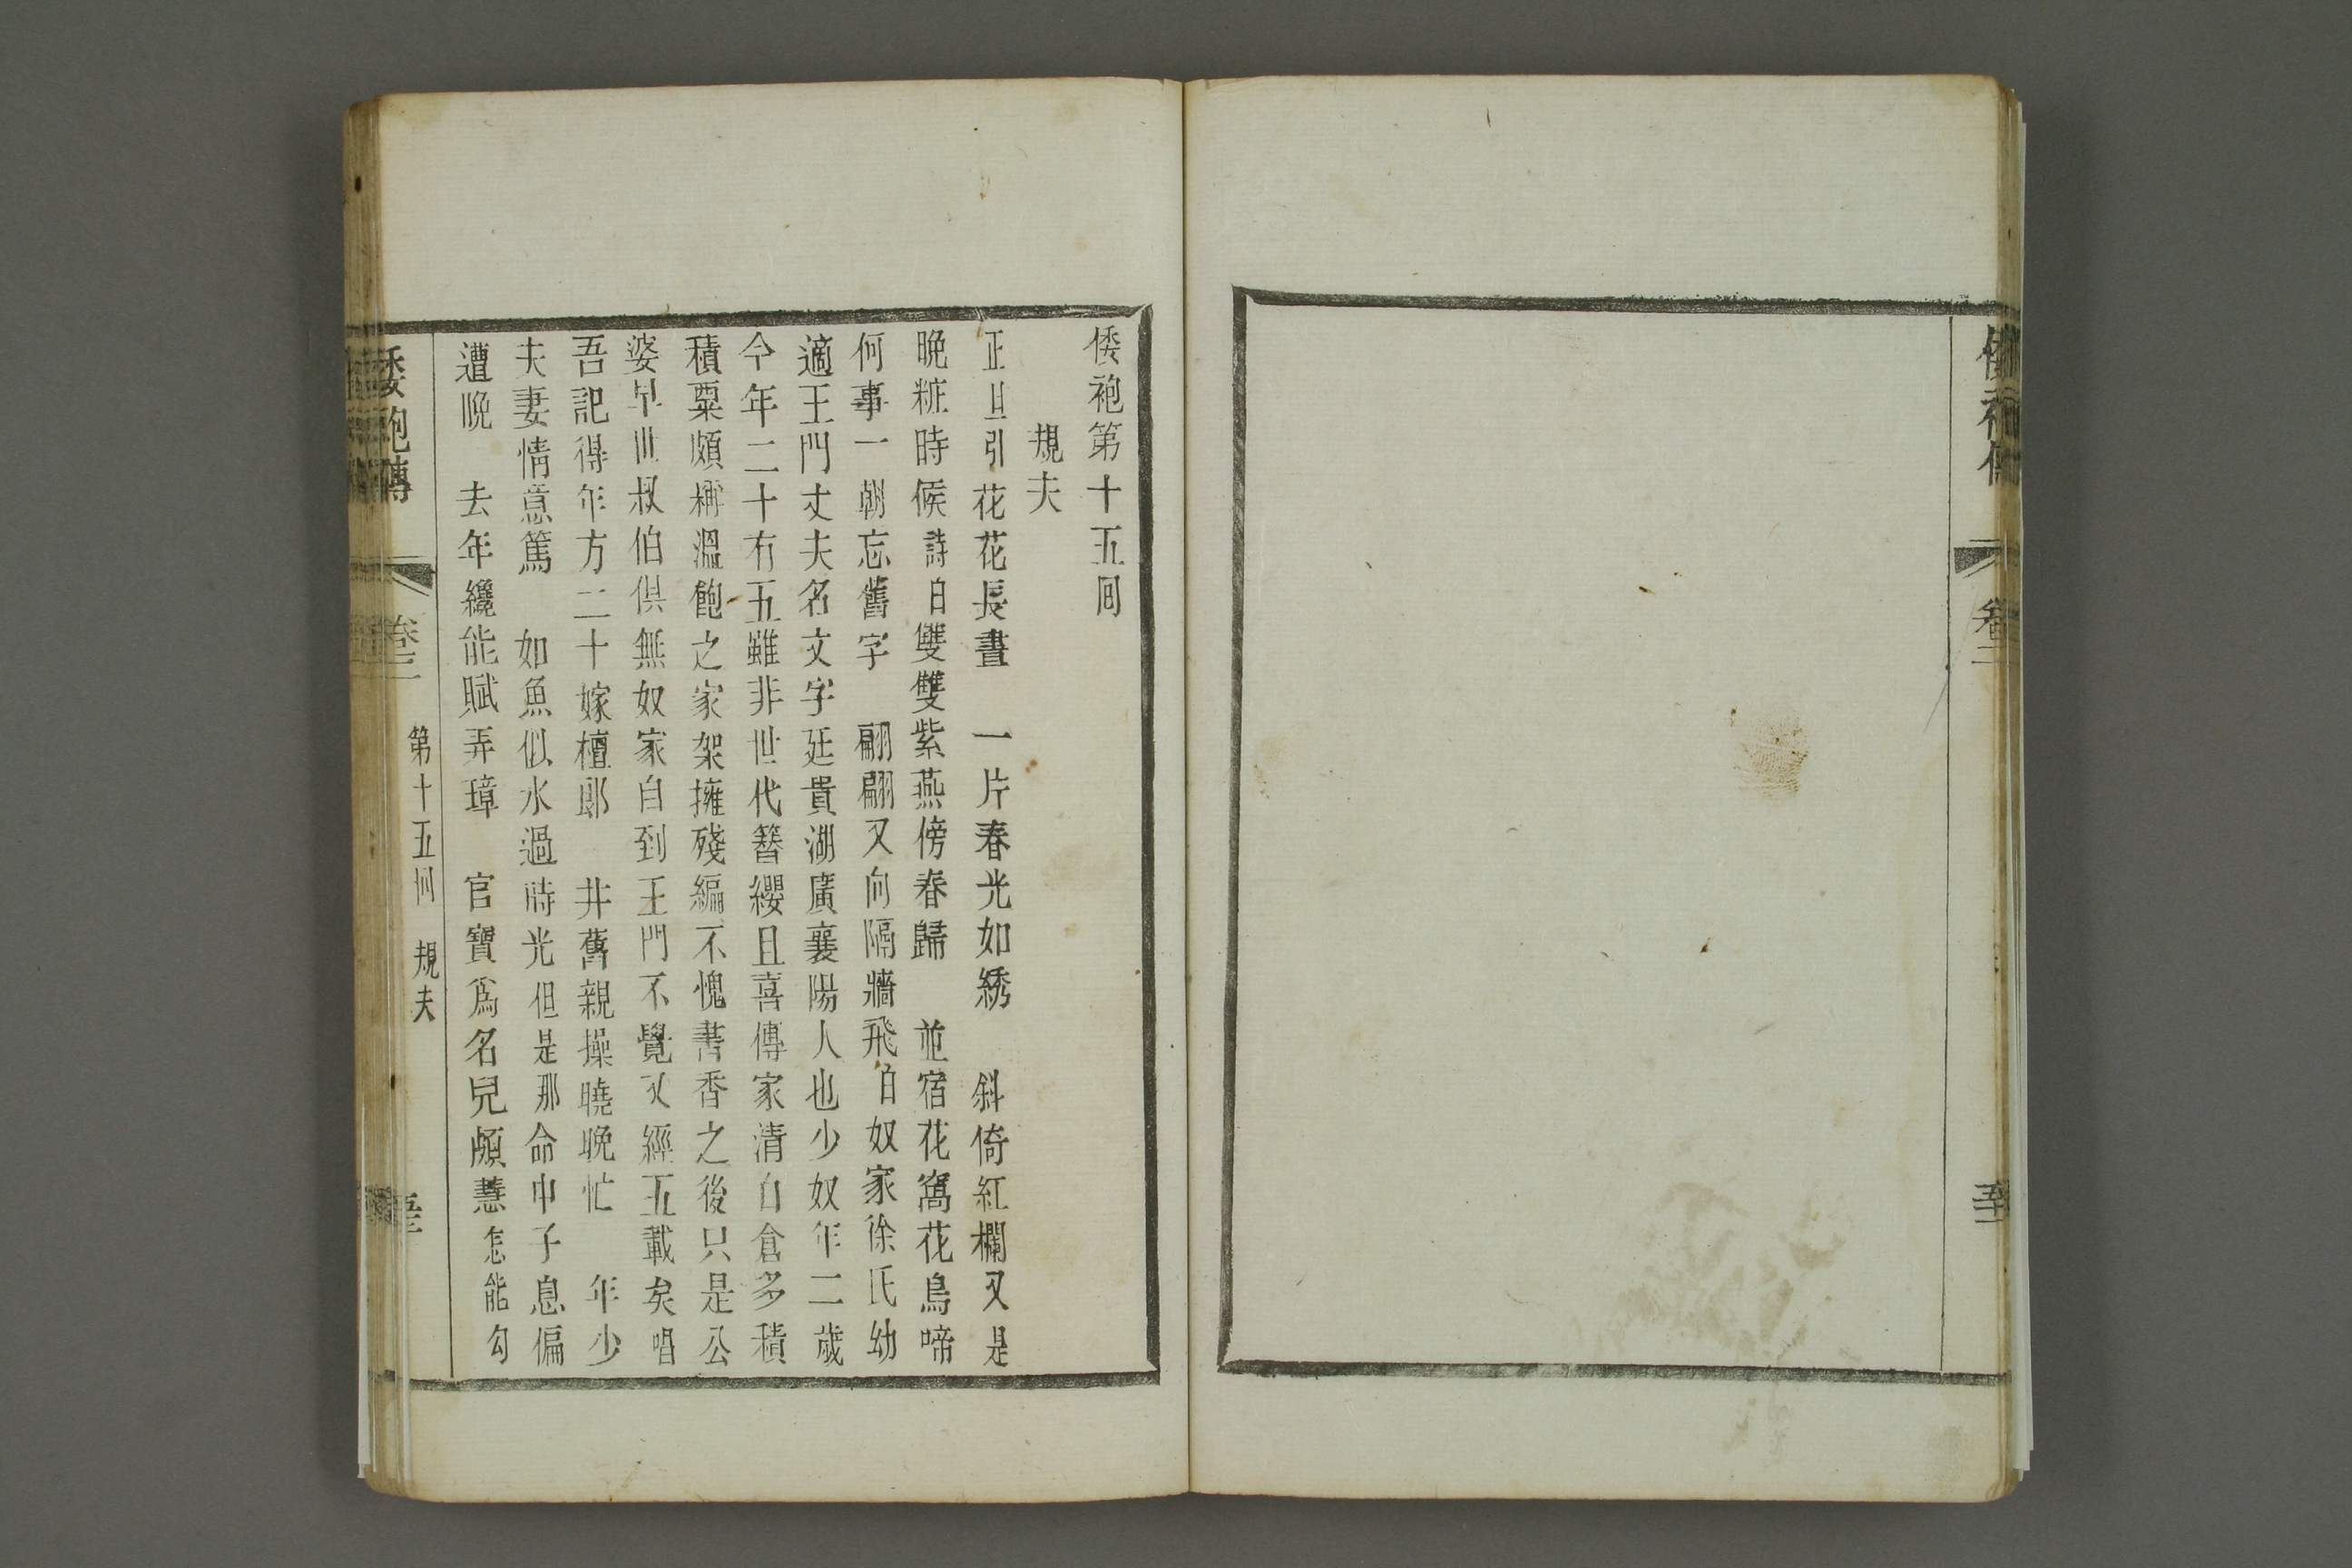 倭袍傳
卷二
倭袍第十五囘
規夫
正旦引花花長晝　一片春光如綉　斜倚紅欄又是
晚粧時候詩白雙雙紫燕傍春歸　並宿花窩花鳥啼
何事一朝忘舊字　翩翩又向隔牆飛白奴家徐氏幼
適王門丈夫名文字廷貴湖廣襄陽人也少奴年二歲
今年二十有五雖非世代簪纓且喜傳家清白倉多積
積粟頗稱溫飽之家架擁殘編不愧書香之後只是公
婆早世叔伯俱無奴家自到王門不覺又經五載矣唱
吾記得年方二十嫁檀郎　井舊親操曉晚忙　年少
夫妻情意篤　如魚似水過時光但是那命中子息偏
遭晚　去年纔能賦弄璋　官寶爲名兒頗慧怎能勾
倭袍傳
卷二
第十五囘　規夫